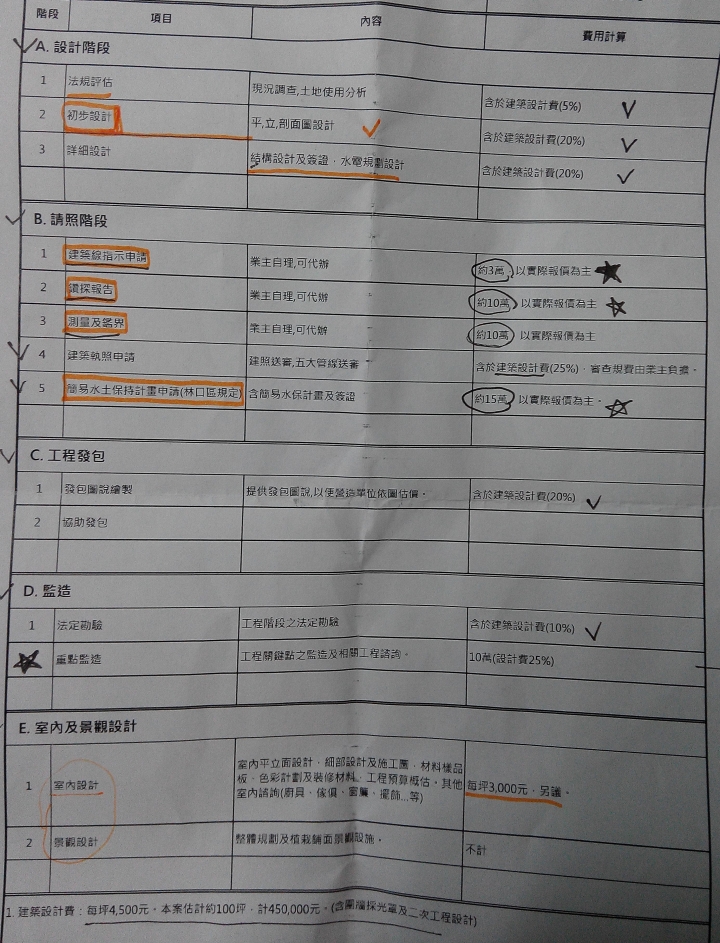 階段 項目 內容 費用計算
A. 設計階段
1 法規評估 現況調查,土地使用分析 含於建築設計費(5%)
2 初步設計 平,立,剖面圖設計 含於建築設計費(20%)
3 詳細設計 結構設計及簽證，水電規劃設計 含於建築設計費(20%)
B. 請照階段
1 建築線指示申請 業主自理,可代辦 約3萬，以實際報價為主
2 鑽探報告 業主自理,可代辦 約10萬，以實際報價為主
3 測量及鑑界 業主自理,可代辦 約10萬，以實際報價為主
4 建築執照申請 建照送審,五大管線送審 含於建築設計費(25%)，審查規費由業主負擔。
5 簡易水土保持計畫申請(林口區規定) 含簡易水保計畫及簽證 約15萬，以實際報價為主。
C. 工程發包
1 發包圖說繪製 提供發包圖說,以便營造單位依圖估價。 含於建築設計費(20%)
2 協助發包
D. 監造
1 法定勘驗 工程階段之法定勘驗 含於建築設計費(10%)
重點監造 工程關鍵點之監造及相關工程諮詢。 10萬(設計費25%)
E. 室內及景觀設計
1 室內設計 室內平立面設計，細部設計及施工圖，材料樣品
板，色彩計劃及裝修材料，工程預算概估。其他
室內諮詢(廚具，傢俱，窗簾，擺飾...等) 每坪3,000元，另議。
2 景觀設計 整體規劃及植栽鋪面景觀設施。 不計
1. 建築設計費：每坪4,500元。本案估計約100坪，計450,000元。(含圍牆採光罩及二次工程設計)